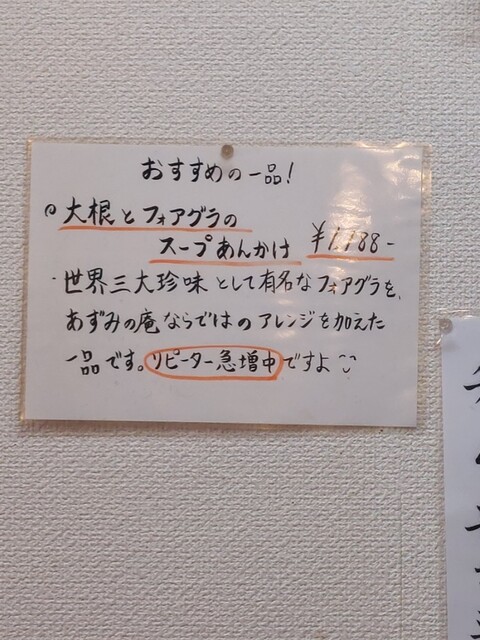 おすすめの一品!
大根とフォアグラの
スープあんかけ ¥1,188-
・世界三大珍味として有名なフォアグラを、
あずみの庵ならではのアレンジを加えた
一品です。リピーター急増中ですよ